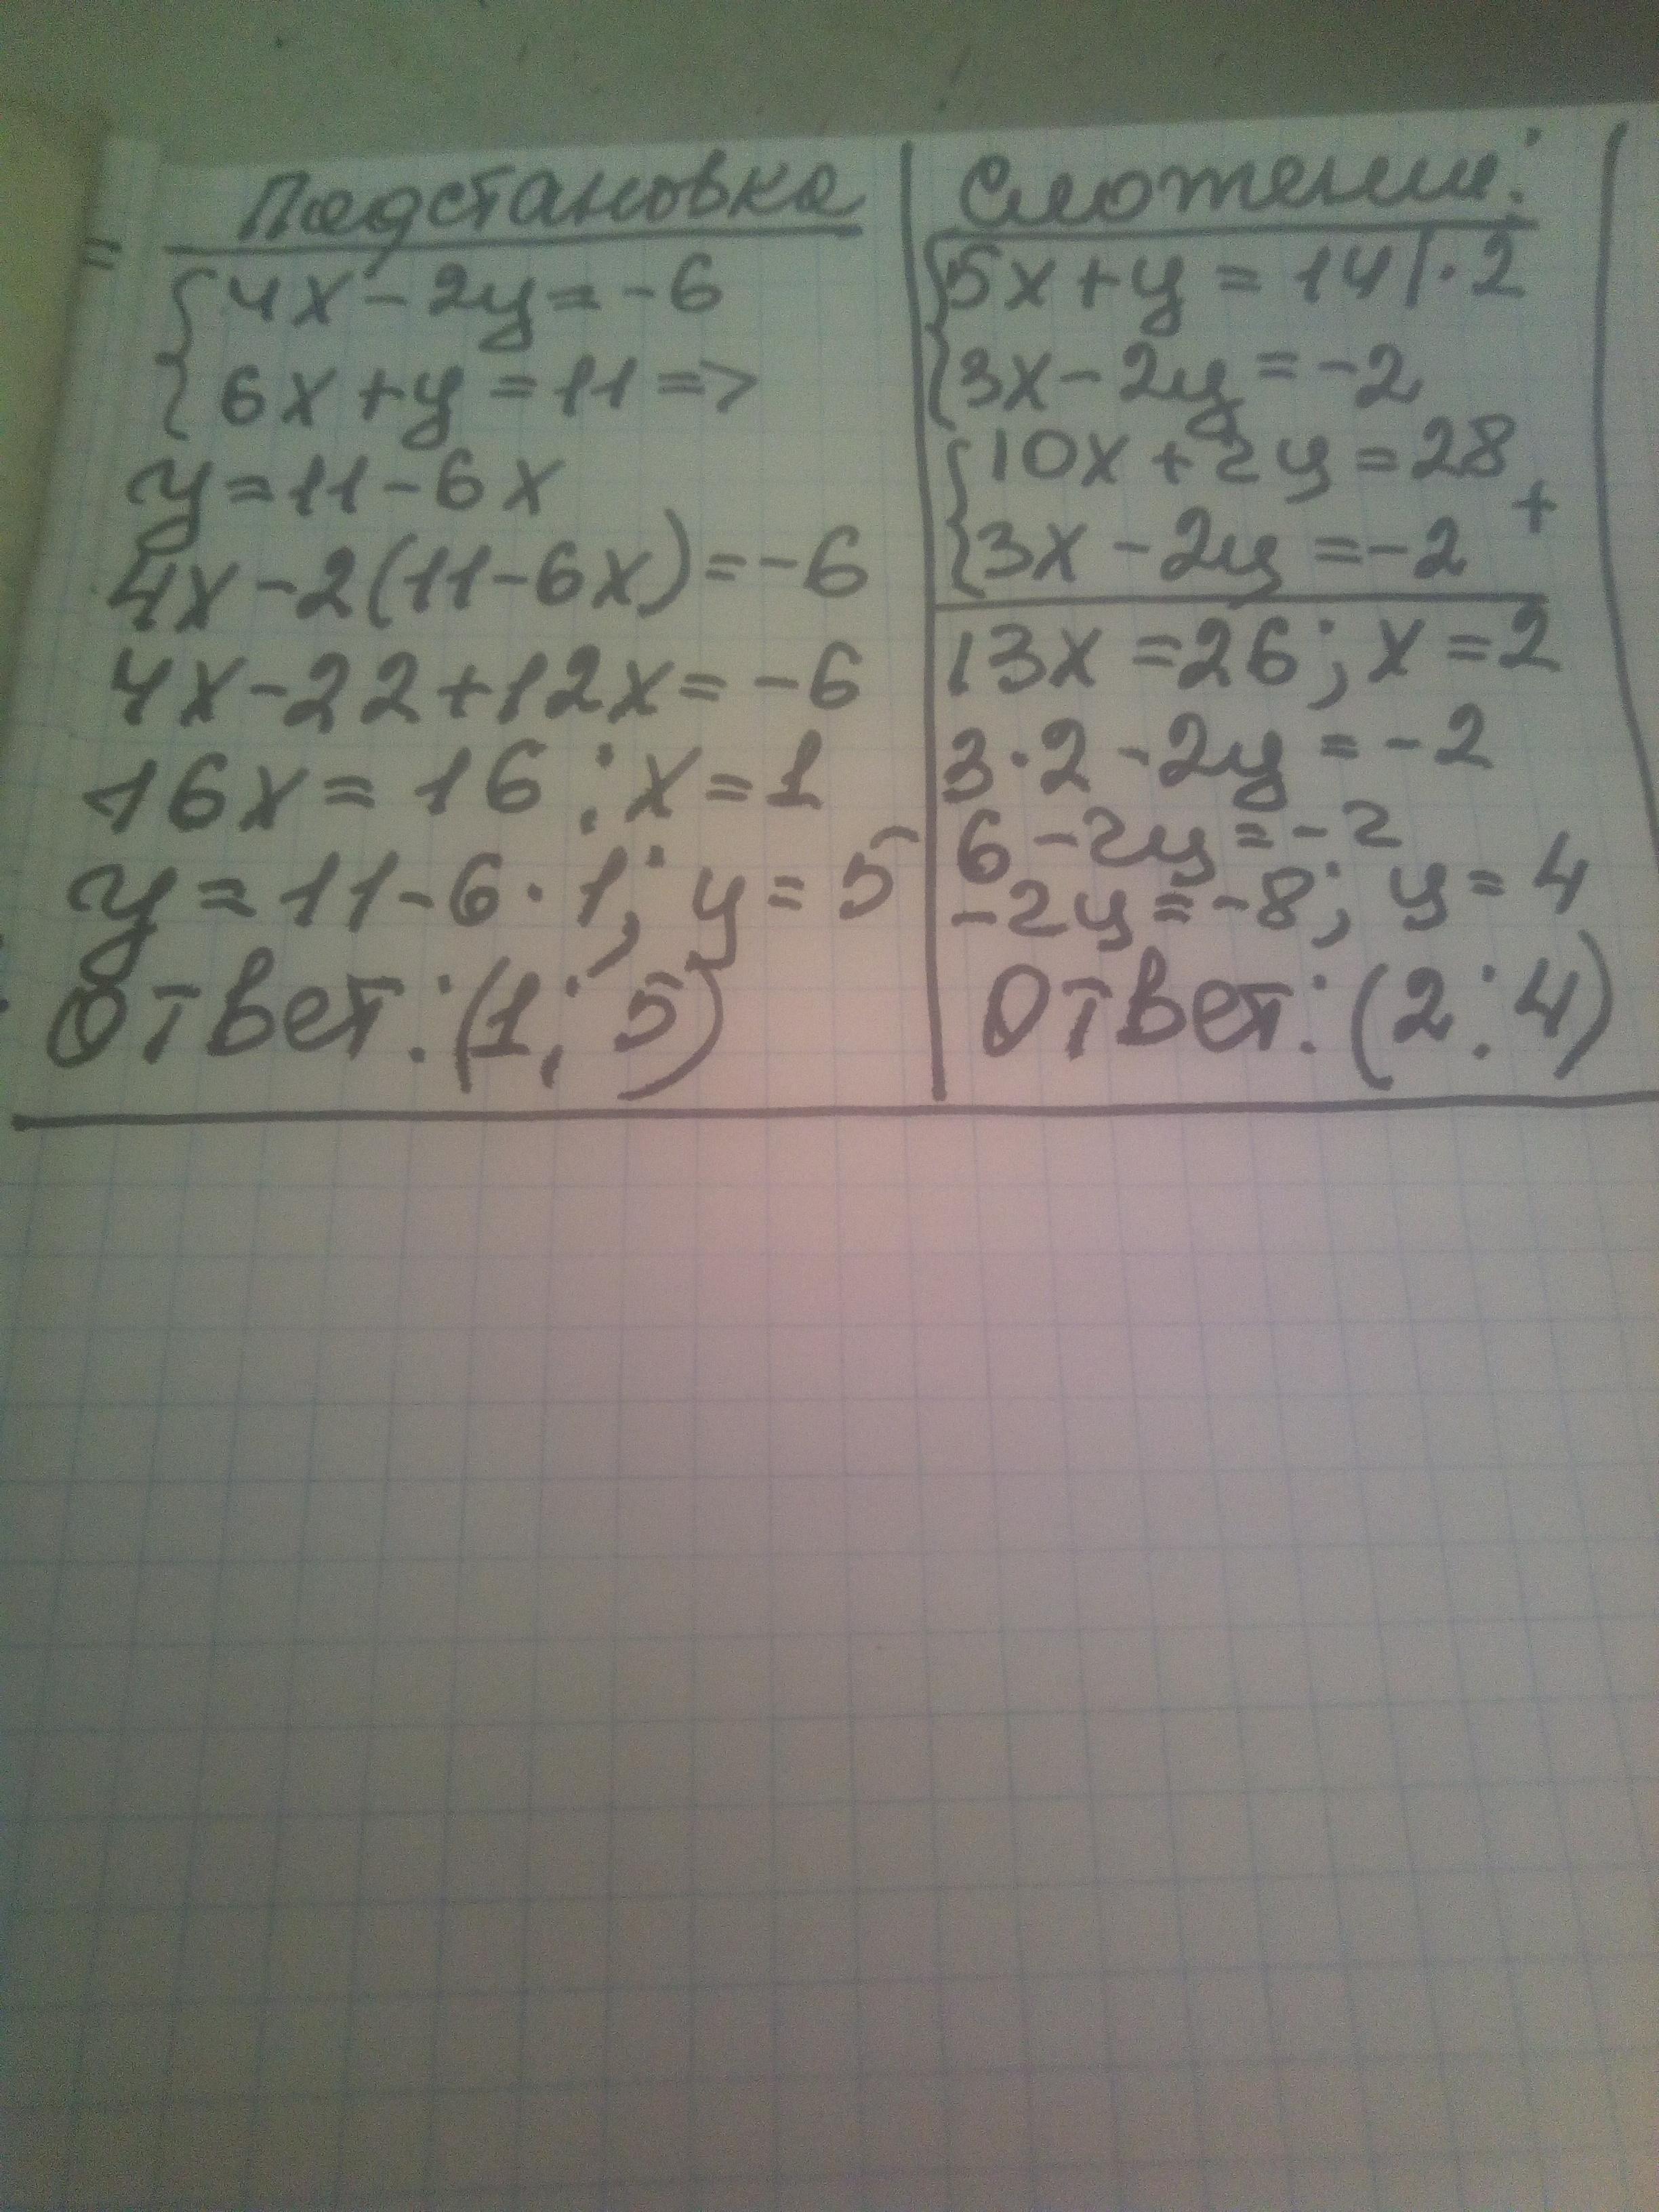 Подстановка
{4x-2y=-6
{6x+y=11=>
y=11-6x
4x-2(11-6x)=-6
4x-22+12x=-6
16x=16; x=1
y=11-6·1; y=5
Ответ:(1; 5)
Сложение:
{5x+y=14|·2
{3x-2y=-2
{10x+2y=28
+
{3x-2y=-2
13x=26; x=2
3·2-2y=-2
6-2y=-2
-2y=-8; y=4
Ответ:(2;4)